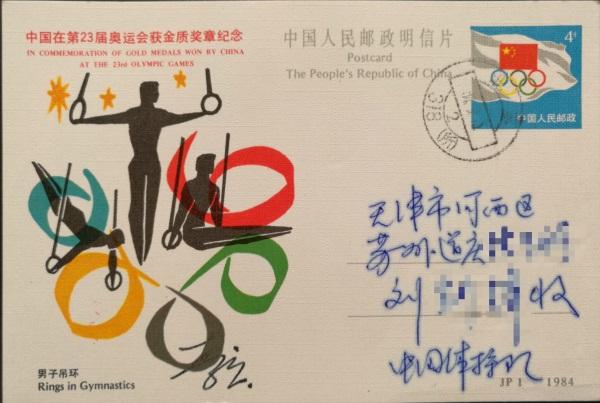 中国在第23届奥运会获金质奖章纪念
IN COMMEMORATION OF GOLD MEDALS WON BY CHINA
AT THE 23rd OLYMPIC GAMES
中国人民邮政明信片
Postcard
The People's Republic of China
4分
中国人民邮政
天津市河西区
苏州道
刘 收
中国体操队
男子吊环
Rings in Gymnastics
JP 1 1984